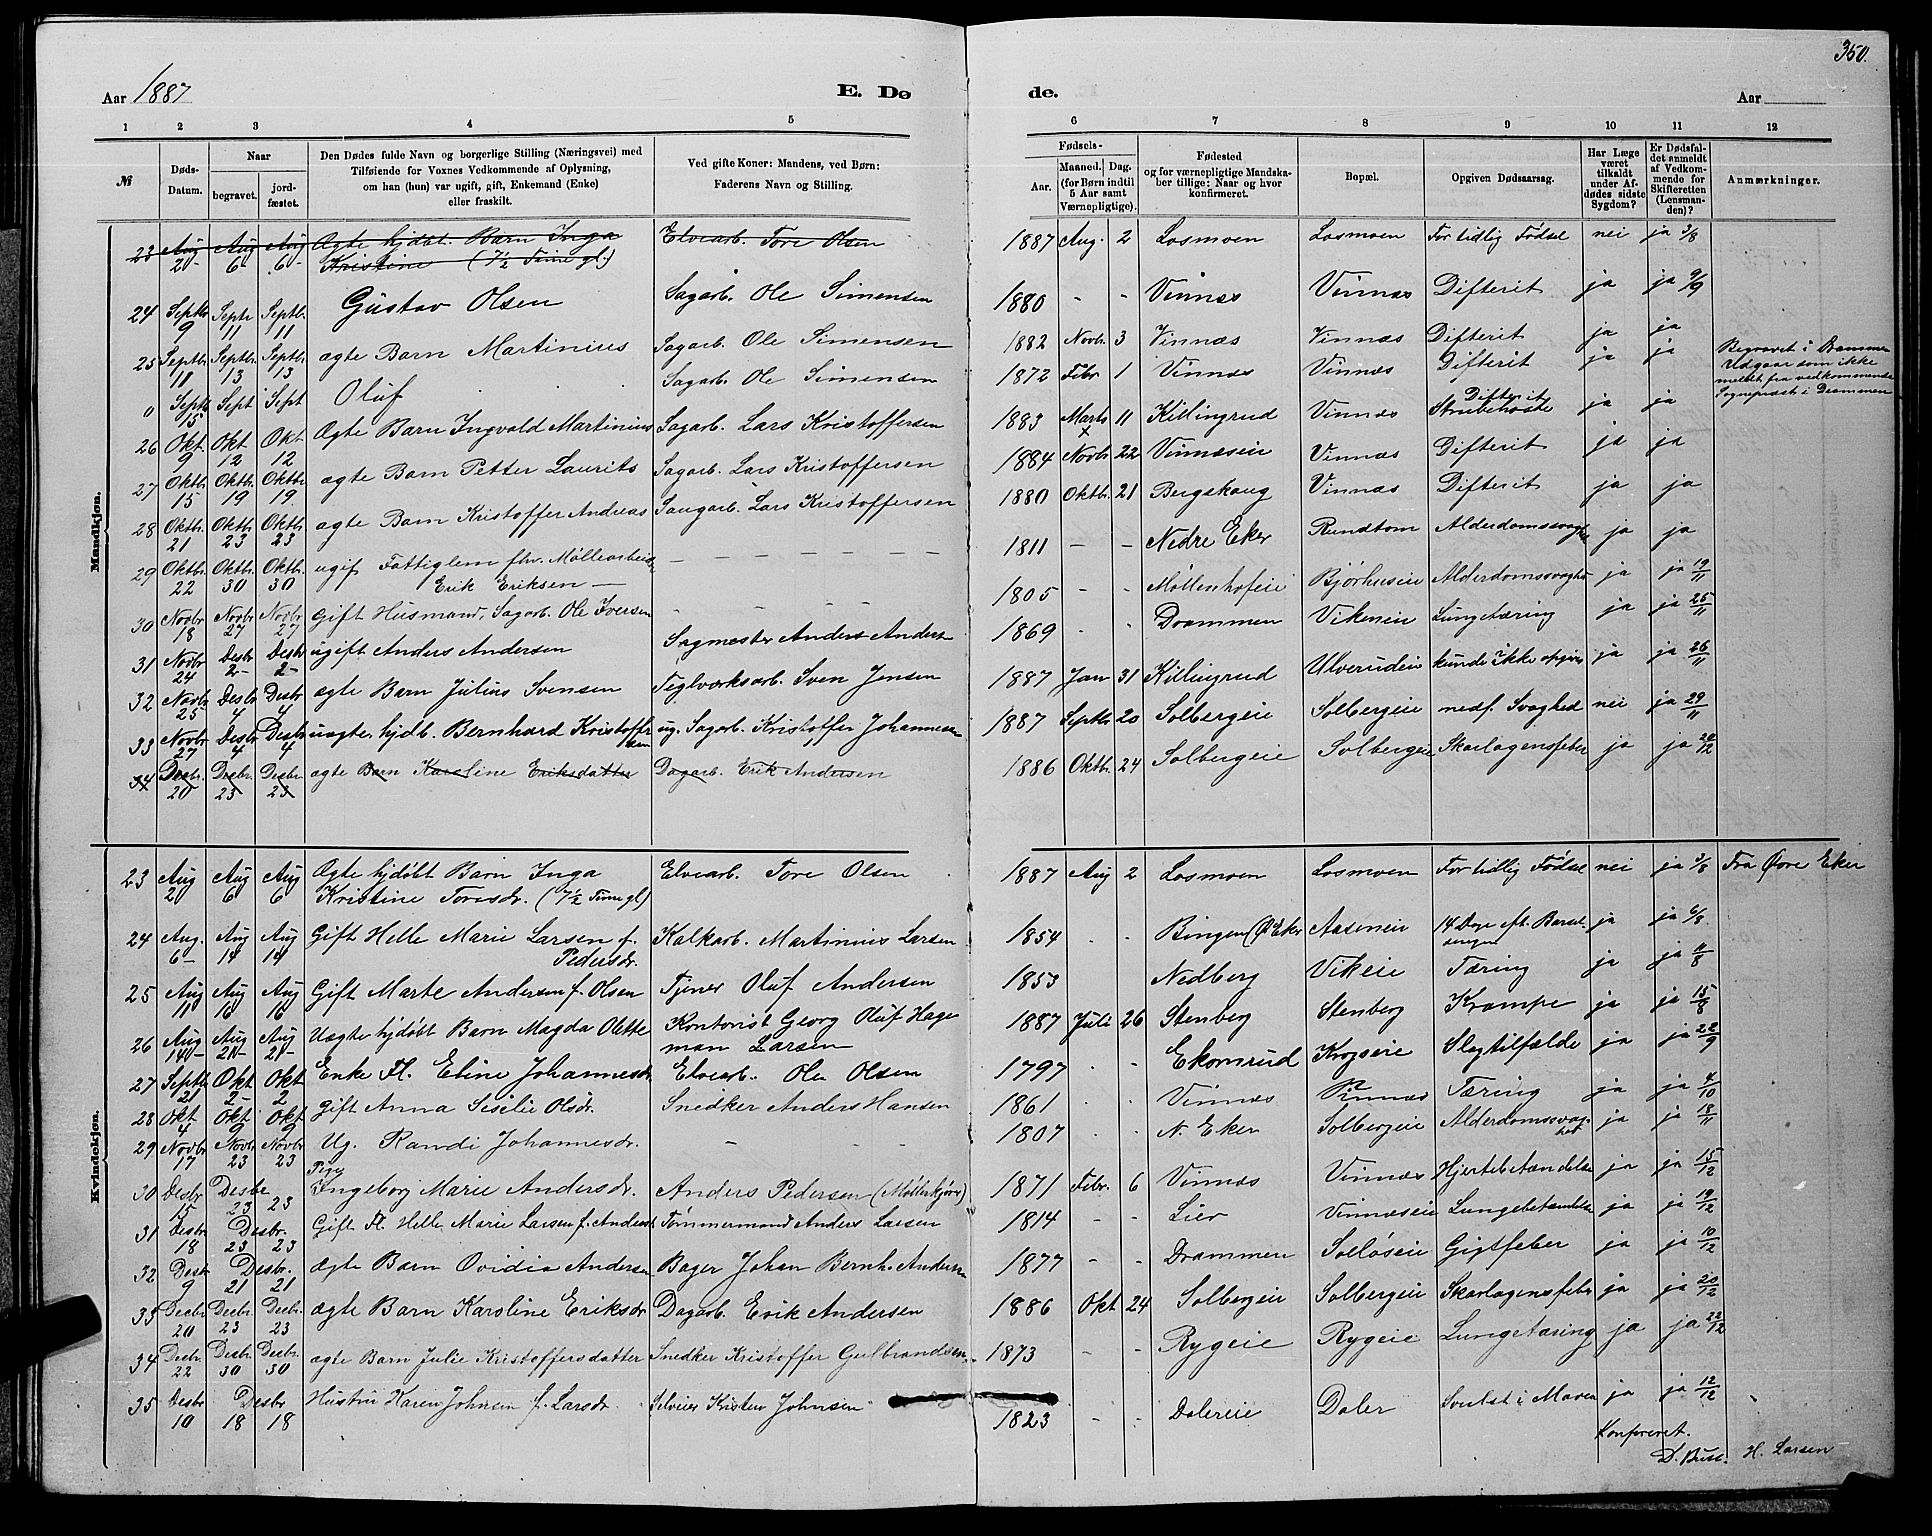 350.
Aar 1887
E. Dø
de.
Aar
1 2 3 4 5 6 7 8 9 10 11 12
№
Døds-Datum.
Naar
begravet.
jord-fæstet.
Den Dødes fulde Navn og borgerlige Stilling (Næringsvei) med
Tilføiende for Voxnes Vedkommende af Oplysning,
om han (hun) var ugift, gift, Enkemand (Enke)
eller fraskilt.
Ved gifte Koner: Mandens, ved Børn:
Faderens Navn og Stilling.
Fødsels-
Aar.
Maaned. Dag.
(for Børn indtil
5 Aar samt
Værnepligtige).
Fødested
og for værnepligtige Mandska-
ber tillige: Naar og hvor
konfirmeret.
Bopæl.
Opgiven Dødsaarsag.
Har Læge
været
tilkaldt
under Af-
dødes sidste
Sygdom?
Er Dødsfal-
det anmeldt
af Vedkom-
mende for
Skifteretten
(Lensman-
den)?
Anmærkninger.
Mandkjøn.
23 Aug 2 Aug 6 Aug 6 Ægte hjdøbt. Barn Inga Elvearb. Tore Olsen 1887 Aug. 2 Losmoen Losmoen For tidlig Fødsel nei ja 3/8
Kristine (7½ Time gl.)
24 Septbr 9 Septr 11 Septb. 11 Gustav Olsen Sagarb. Ole Simensen 1880 - - Vinnæs Vinnæs Difterit ja ja 9/9
25 Septbr. Septbr. 13 Septbr. 13 ægte Barn Martinius Sagarb. Ole Simensen 1882 Novb. 3 Vinnæs Vinnæs Difterit ja ja
0 Septb 15 Sept Sept Oluf Sagarb. Ole Simensen 1872 Febr 1 Vinnæs Vinnæs Difterit ja ja Begravet i
som ikke
meldt fra vedkommende
Sogneprest i Drammen
26 Okt 9 Okt 12 Okt 12 Ægte Barn Ingvald Martinius Sagarb. Lars Kristoffersen 1883 Marts 11 Killingrud Vinnæs Difterit Strubehoste ja ja
27 Oktb. 15 Oktb. 19 Oktbr 19 ægte Barn Petter Laurits Sagarb. Lars Kristoffersen 1884 Novb. 22 Vinnæseie Vinnæs Difterit ja ja
28 Oktb. 21 Oktb. 23 Oktb. 23 ægte Barn Kristoffer Andreas Saugarb. Lars Kristoffersen 1880 Oktb. 21 Bergskaug Vinnæs Difterit ja ja
29 Oktbr. 22 Oktb. 30 Oktb. 30 ugif Fattiglem fhv. Møllearbeider - - - - 1811 - - Nedre Eker Rundtom Alderdomssvaghed ja ja
Erik Eriksen
30 Novbr 18 Novbr 27 Novbr 27 Gift Husmand, Sagarb. Ole Iversen - - - - 1805 - - Møllenhofeie Bjørhuseie Alderdomssvaghed ja ja 19/11
31 Novbr 24 Desbr 2 Desbr 2 ugift Anders Andersen Sagmester Anders Andersen 1869 Drammen Vikeneie Lungetæring ja ja 25/11
32 Novbr 25 Desbr 4 Desbr 4 ægte Barn Julius Svensen Teglværksarb. Sven Jensen 1887 Jan 31 Killingrud Ulverudeie kunde ikke opgives ja ja 26/11
33 Novbr 27 Desbr 4 Desbr 4 uægte, hjdb. Bernhard Kristoffersen ug. Sagarb. Kristoffer Johannesen 1887 Septbr 20 Solbergeie Solbergeie nedf. Svaghed nei ja 29/11
34 Desbr. 20 Desbr. 23 Desbr 23 ægte Barn Karoline Eriksdatter Dagarb. Erik Andersen 1886 Oktb. 24 Solbergeie Solbergeie Skarlagensfeber ja ja 20/12
Kvindekjøn.
23 Aug 2 Aug 6 Aug 6 Ægte hjdøbt Barn Inga Elvearb. Tore Olsen 1887 Aug 2 Losmoen Losmoen For tidlig Fødsel nei ja 3/8 Fra Øvre Eker
Kristine Toresdr. (7½ Time gl)
24 Aug. 6 Aug 14 Aug 14 Gift Helle Marie Larsen f. Pedersdr. Kalkarb. Martinius Larsen 1854 Bingen (Ø Eker Aaseneie 14 Dage eft. Barselsengen ja ja 6/8
25 Aug 11 Aug 16 Aug 16 Gift Marte Andersen f. Olsen Tjener Oluf Andersen 1853 Nedberg Vikeie Tæring ja ja 11/8
26 Aug 14 Aug 21 Aug 21 Uægte hjdøbt Barn Magda Olette Kontorist Georg Oluf Hageman Larsen 1887 Juli 26 Stenberg Stenberg Krampe ja ja 15/8
27 Septb. 21 Okt 2 Okt 2 Enke Fl. Eline Johannesdr Elvearb. Ole Olsen 1797 Ekornrud Krogseie Slagtilfælde ja ja 22/9
28 Okt 4 Okt 9 Okt 9 Gift Anna Siselie Olsdr. Snedker Anders Hansen 1861 Vinnæs Vinnæs Tæring ja ja 4/10
29 Novbr 17 Novbr 23 Novbr 23 Ug. Randi Johannesdr. - - 1807 N. Eker Solbergeie Alderdomssvaghed ja ja 18/11
30 Desbr 15 Desbr 23 23 Pige Ingeborg Marie Andersdr. Anders Pedersen (Møllerkjører) 1871 Febr. 6 Vinnæs Vinnæs Hjertebetændelse ja ja 15/12
31 Desbr 18 Desbr. 23 23 Gift Fl. Helle Marie Larsen f. Andersd Tømmermand Anders Larsen 1814 - - Lier Vinnæseie Lungebetændelse ja ja 19/12
32 Desbr 9 Desbr. 21 21 ægte Barn Ovidia Andersen Bager Johan Bernh. Andersen 1877 - - Drammen Solløseie Gigtfeber ja ja 10/12
33 Desbr 20 Desbr 23 Desbr. 23 ægte Barn Karoline Eriksdr Dagarb. Erik Andersen 1886 Okt 24 Solbergeie Solbergeie Skarlagensfeber ja ja 20/12
34 Desbr. 22 Desbr. 30 Desbr. 30 ægte Barn Julie Kristoffersdatter Snedker Kristoffer Gulbrandsen 1873 - - Rygeie Rygeie Lungetæring ja ja 22/12
35 Desbr 10 Desbr 18 18 Hustru Karen Johnsen f. Larsdr. Selveier Kristen Johnsen 1823 - - Dalereie Daler Svulst i Maven ja ja 12/12
Konfereret.
H. Larsen